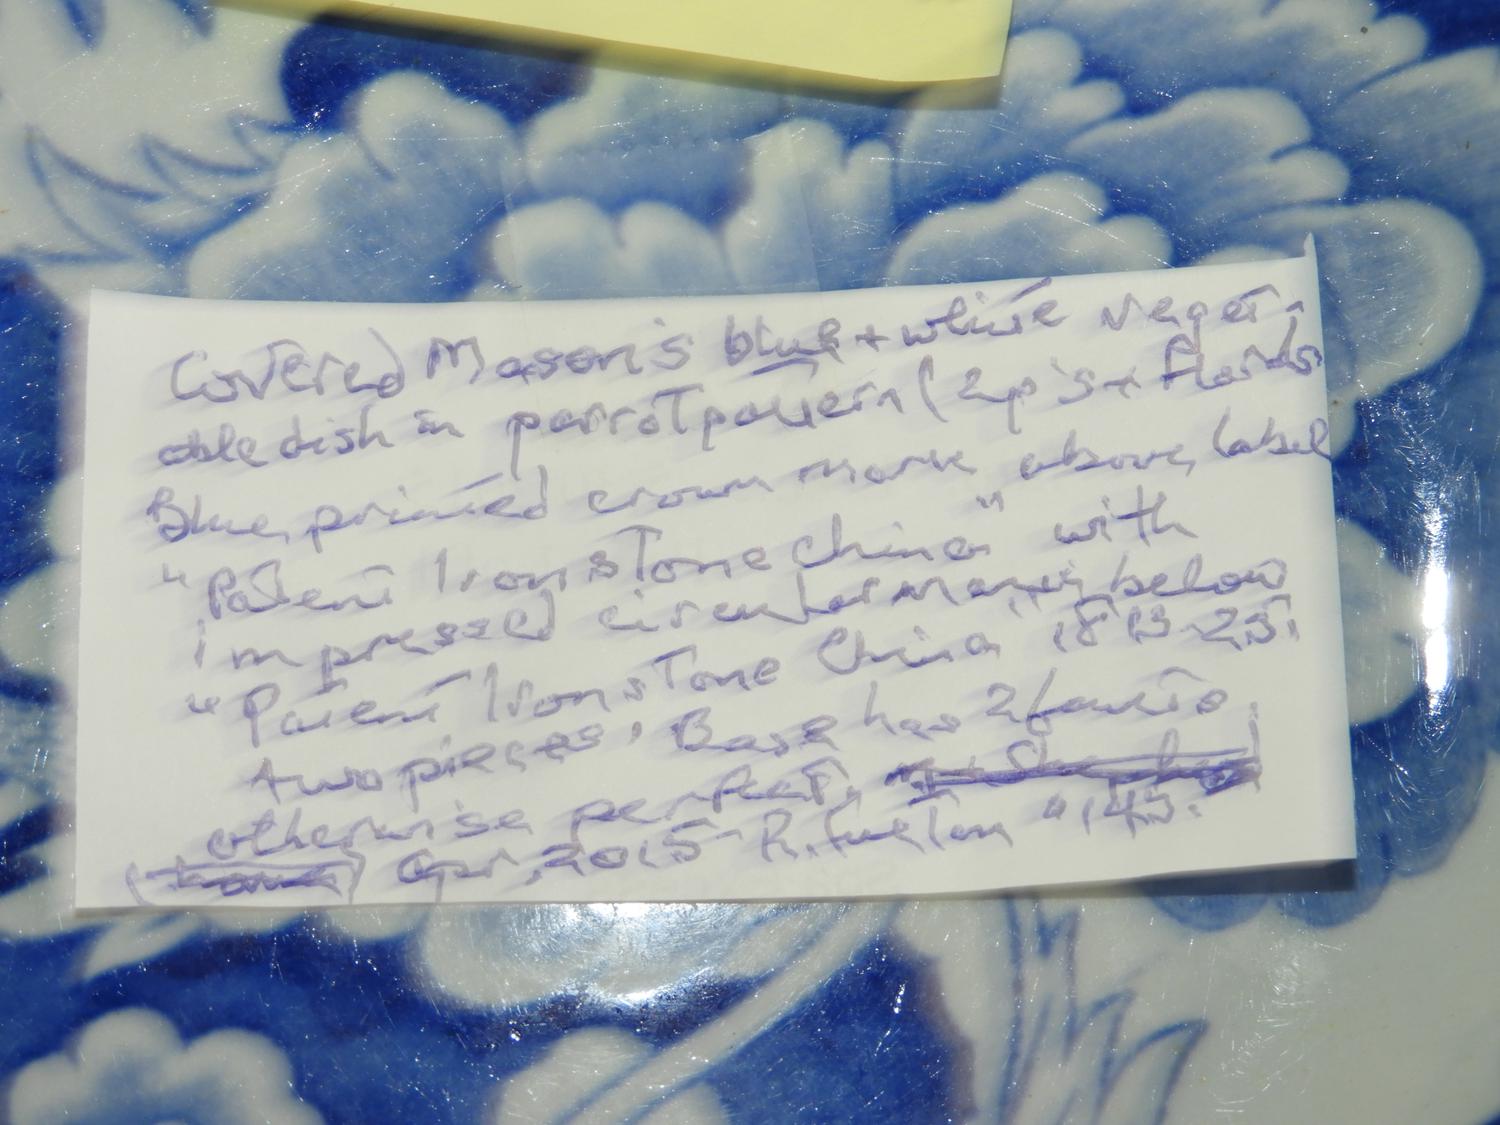 Covered Mason's blue + white veget-
able dish in parrot pattern (2 p's + florals
Blue, printed crown mark above, label
"Patent Ironstone China" with
impressed circular mark, below
"Patent Ironstone China" 1813-25.
two pieces. Base has
otherwise perfect.
Apr, 2015 R. Fuelon "145.